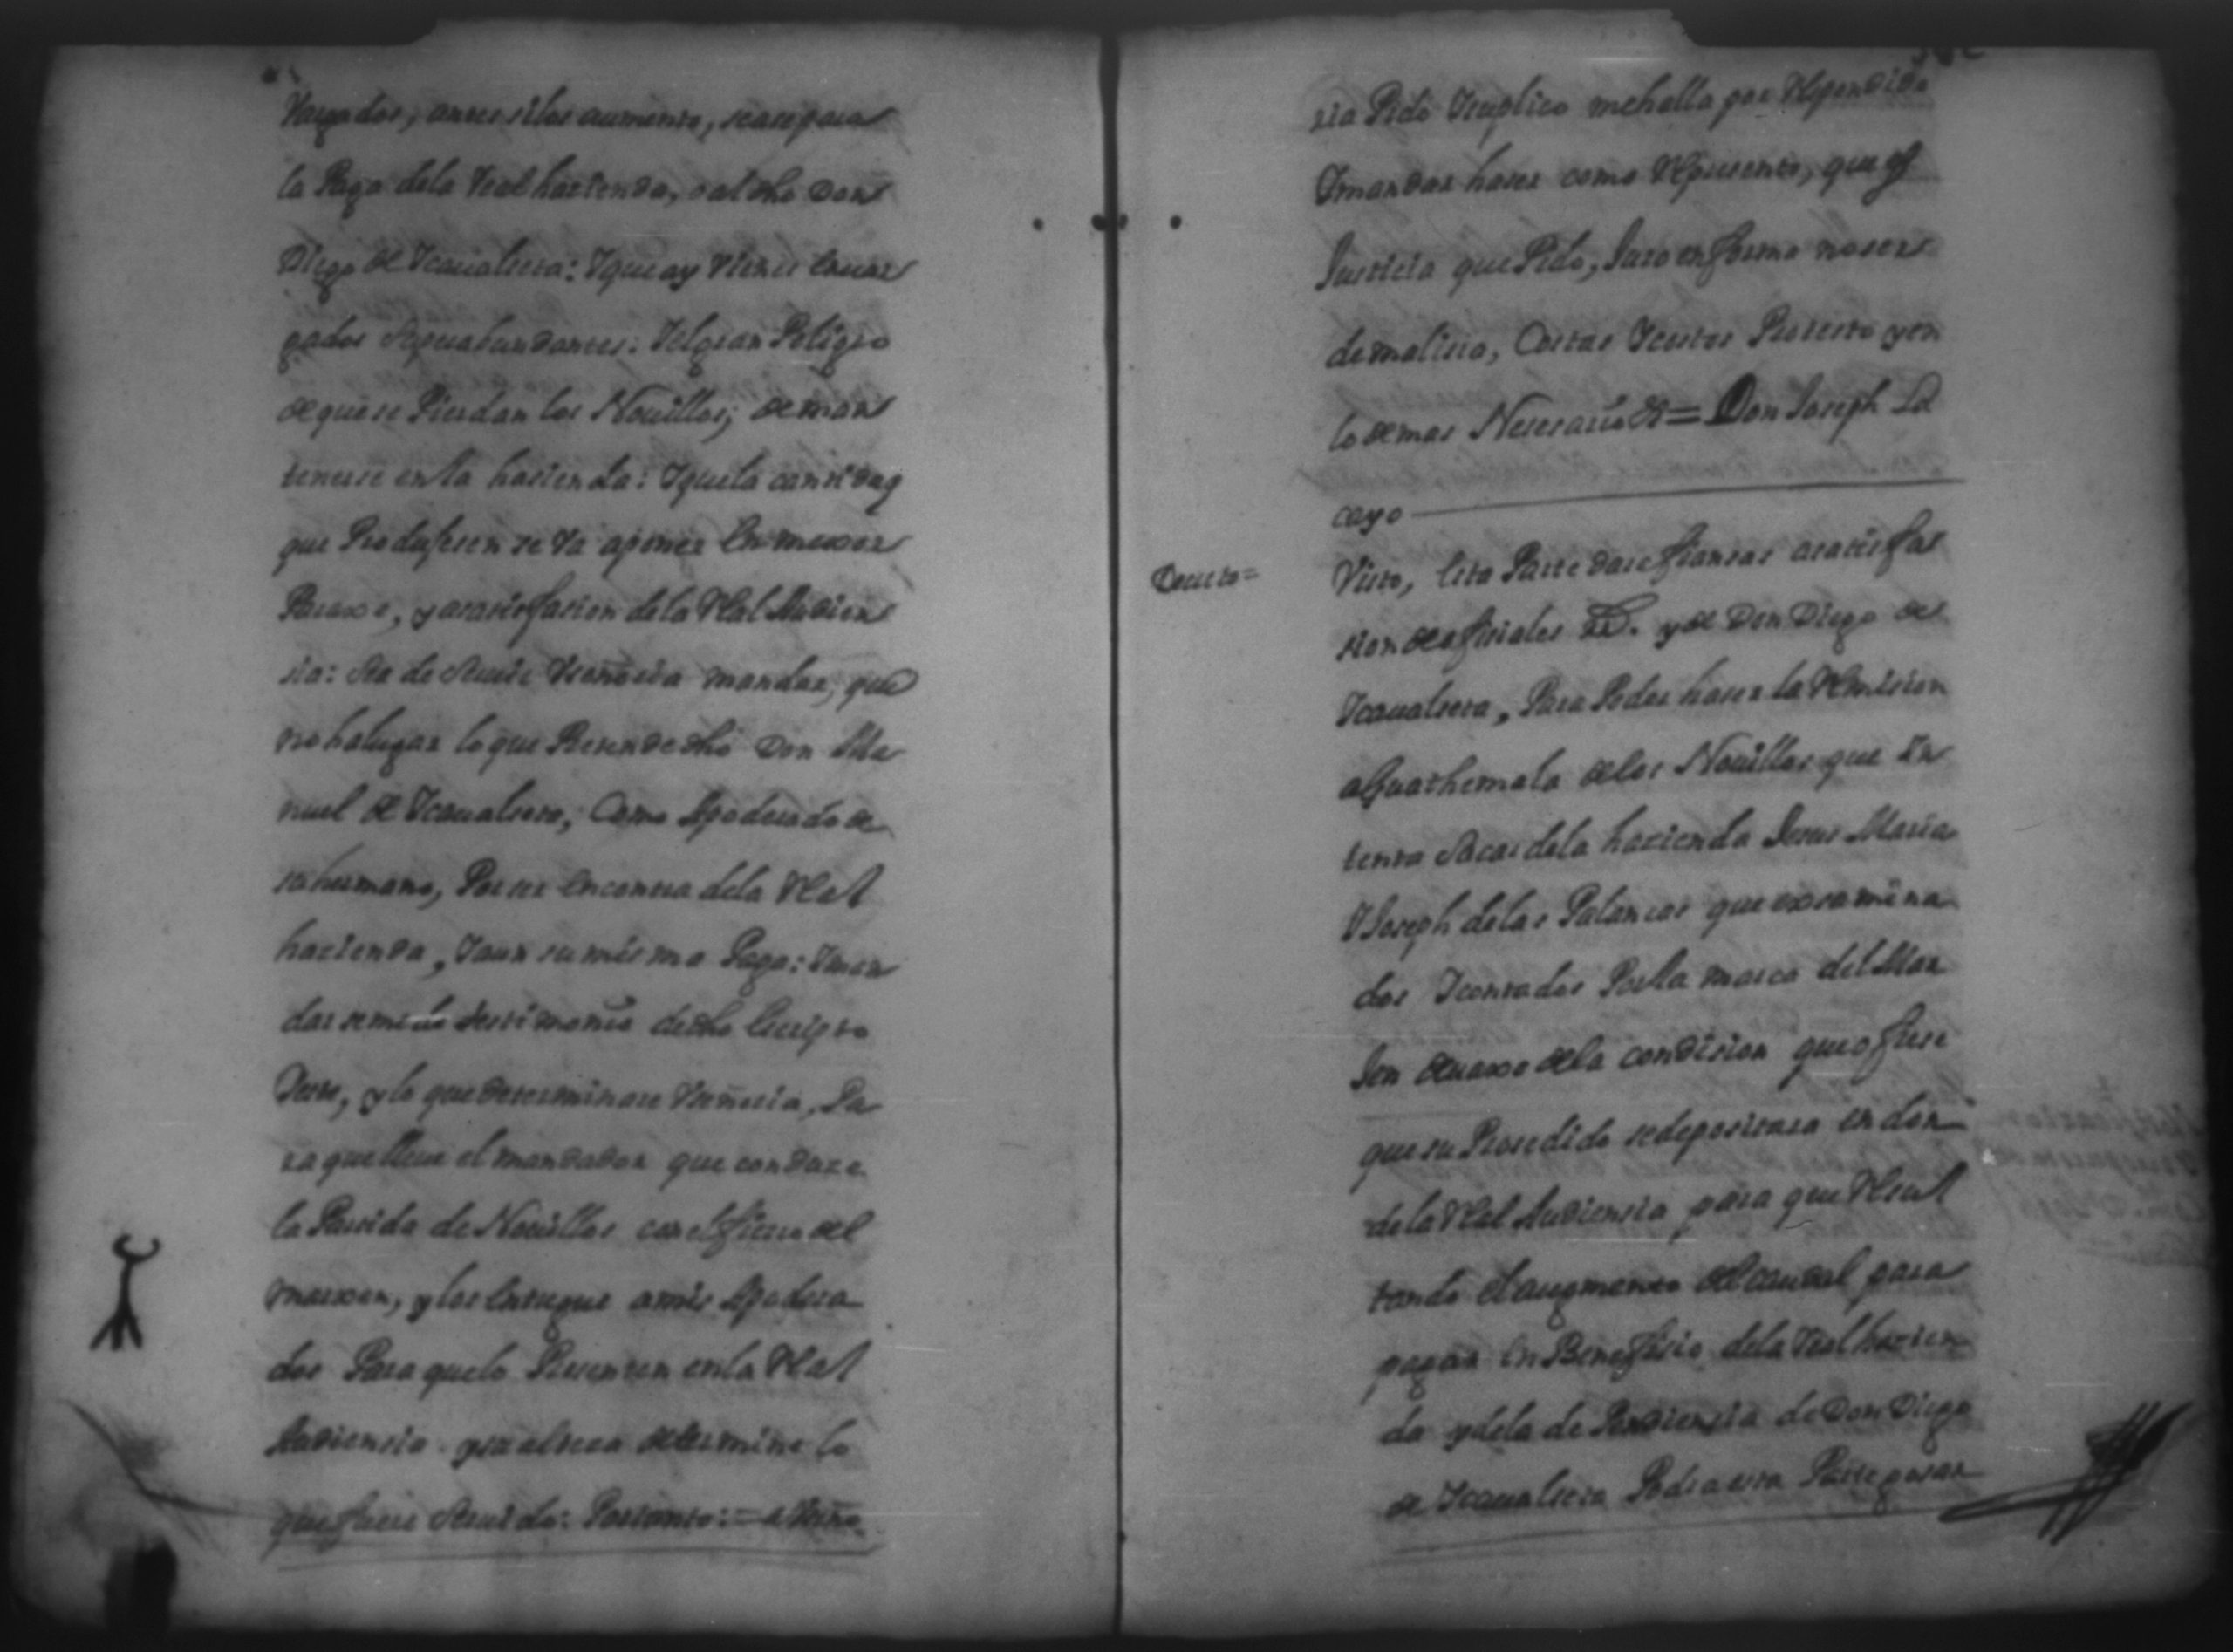 la Paga dela Real hazienda, o al dho Don
Diego de Ycaualseta: Yque ay
gados Superabundantes: Yel gran Peligro
de que se Pierdan los Nouillos, de man
tenerse en la hazienda: Yque la cantidad
que Produseren se Va aponer En mexor
Paraxe, y asatisfasion dela Rl Audien
sia: Ha de Seruir Vseñoria mandar, que
no ha lugar lo que Pretende dho Don Ma
nuel de Ycaualseta, Como Apoderado de
su hermano, Por ser En contra dela Real
hazienda, Yaun su misma Paga: Yman
dar se me de testimonio de dho Escripto
Yeste, y lo que determinare Vseñoria, Pa
ra que lleue el mandador que conduze
la Partida de Nouillos con el fierro del
marxen, y los Entregue a mis Apodera
dos Para que lo Presenten en la Real
Audiensia y su alteza determine lo
que fuere Seruido: Por tanto: = a Vseño
ria Pido Ysuplico me halla por
Ymandar hazer como Represento, que es
Justicia que Pido, Juro en forma no ser
de malisia, Costas Ycostos Protesto y en
lo demas Nesesario &a = Don Joseph La
cayo
Decreto =
Visto, Esta Parte dara fianzas asatisfac
sion de ofisiales Rs. y de Don Diego de
Ycaualseta, Para Poder hazer la Remision
a Guathemala de los Nouillos que In
tenta Sacar dela hazienda Jesus Maria
Y Joseph delas Palancas que examina
dos Ycontados Por la marca del Mar
Jen deuaxo de la condision que ofrese
que su Prosedido se depositara en don
de la Real Audiensia para que Resul
tando el augmento del caudal para
pagar En Benefisio dela Real hazien
da y dela dePendiensia de Don Diego
de Ycaualseta Podra esta Parte pasar